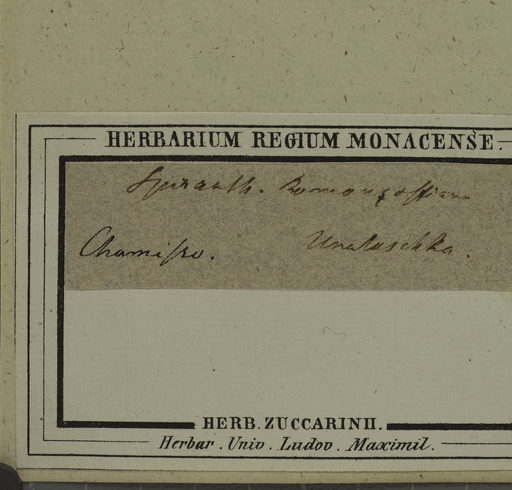 HERBARIUM REGIUM MONACENSE.
Spiranth. Romanzoffiana
Chamisso. Unalaschka.
HERB. ZUCCARINII.
Herbar. Univ. Ludov. Maximil.